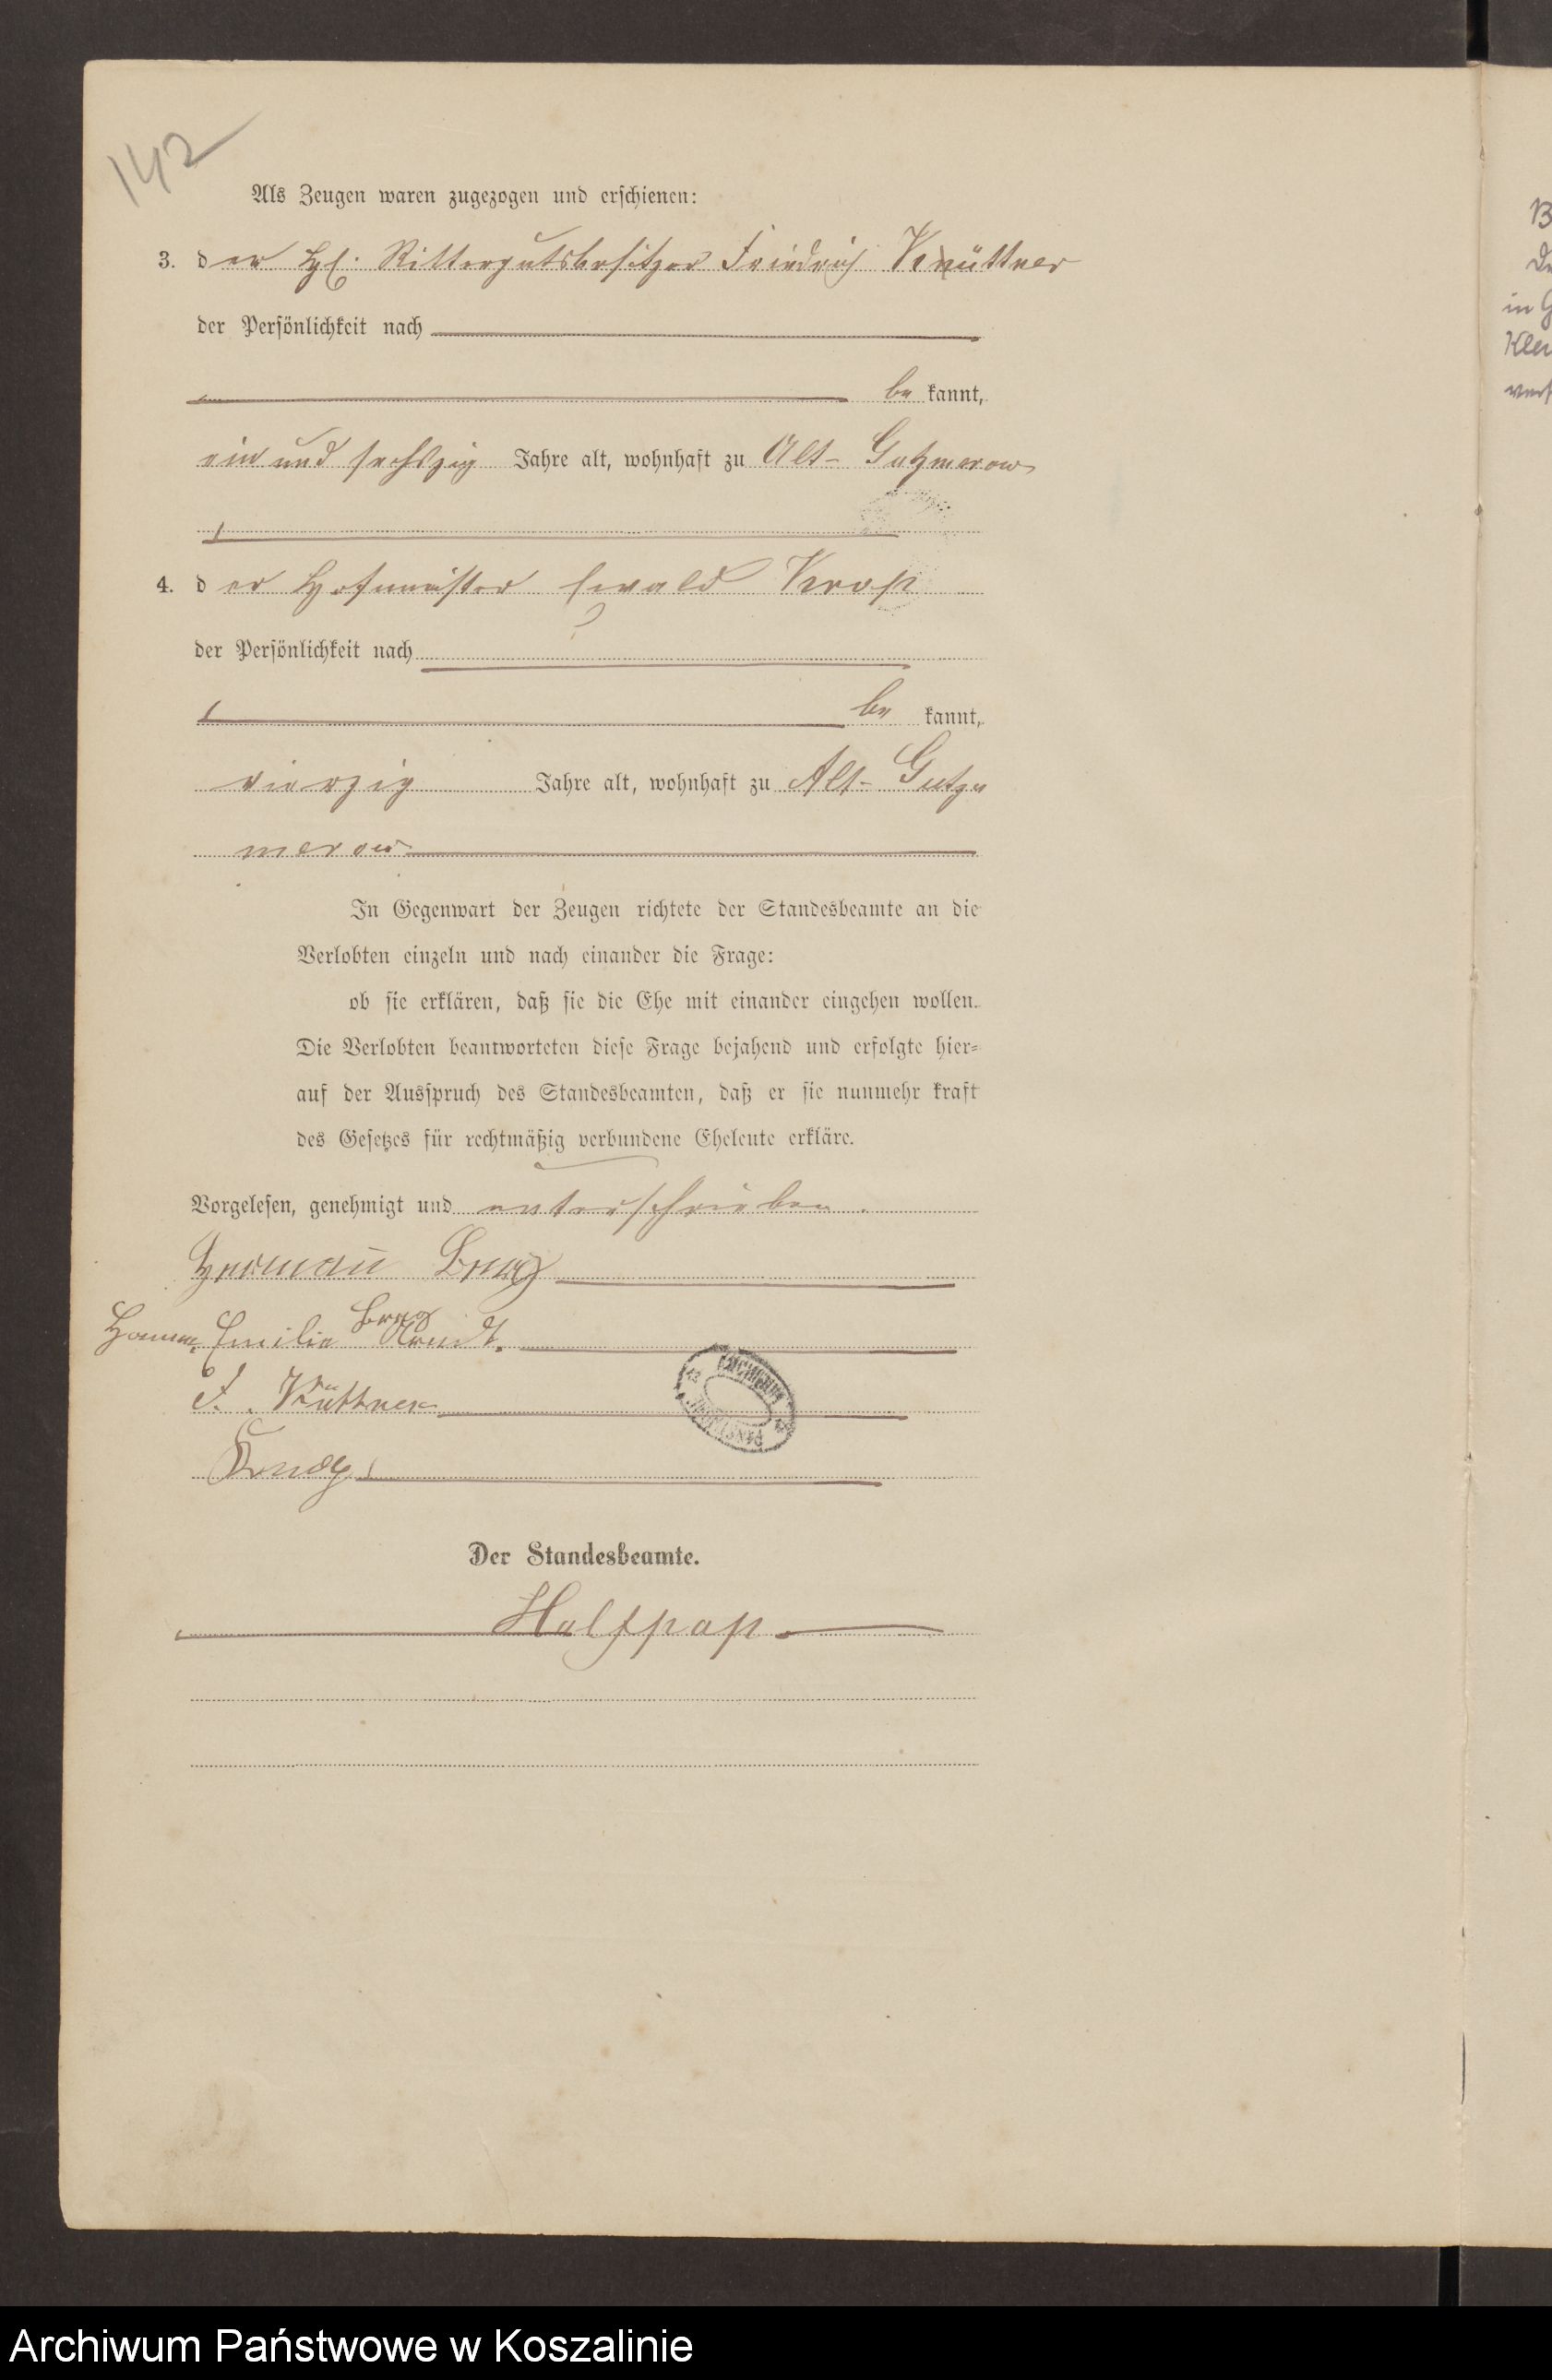 142
Als Zeugen waren zugezogen und erschienen:
3. der Rittergutsbesitzer Friedrich
der Persönlichkeit nach
be kannt,
ein und sechszig Jahre alt, wohnhaft zu Alt-Gutzmerow
4. der Hofmeister Ewald
der Persönlichkeit nach
be kannt,
vierzig Jahre alt, wohnhaft zu Alt-Gutz
merow
In Gegenwart der Zeugen richtete der Standesbeamte an die
Verlobten einzeln und nach einander die Frage:
ob sie erklären, daß sie die Ehe mit einander eingehen wollen.
Die Verlobten beantworteten diese Frage bejahend und erfolgte hier=
auf der Ausspruch des Standesbeamten, daß er sie nunmehr kraft
des Gesetzes für rechtmäßig verbundene Eheleute erkläre.
Vorgelesen, genehmigt und unterschrieben.
Herman
Emilie
F.
Der Standesbeamte.
Halfpap
in
Archiwum Państwowe w Koszalinie